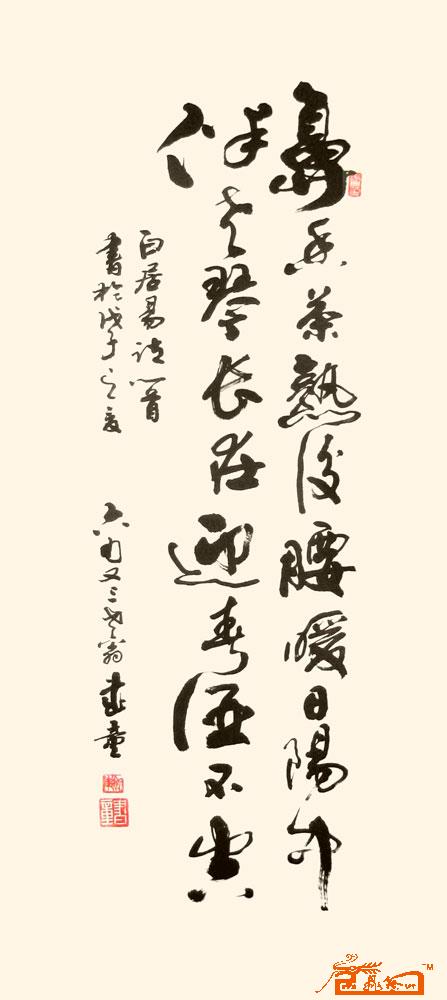 鼻香茶熟後腰暖日陽中
伴老琴长在迎春酒不空
白居易诗一首
書於戊子之夏 六旬又三老翁書童